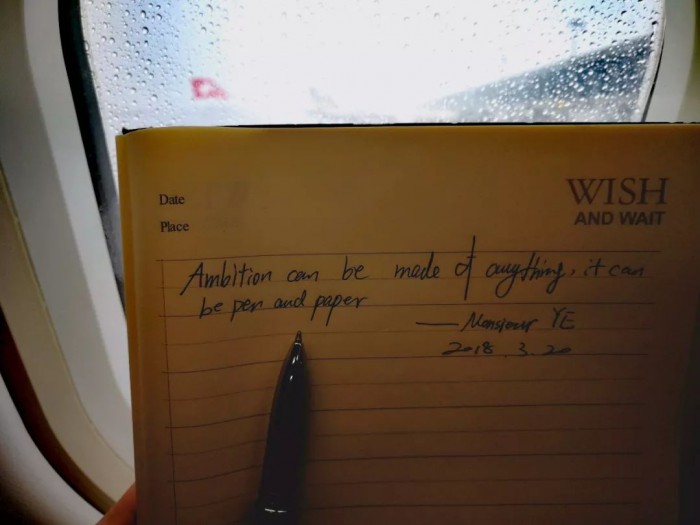 Date
WISH
Place
AND WAIT
Ambition can be made of anything, it can
be pen and paper
— Monsieur YE
2018 3.20